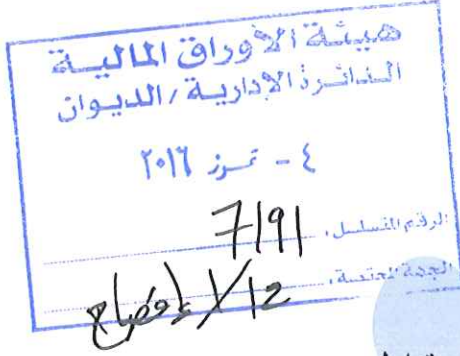 هيئة الأوراق المالية
الدائرة الإدارية / الديوان
٤ - تموز ٢٠١٦
الرقم المتسلسل، 7191
الجهة المختصة، 12 / إفصاح